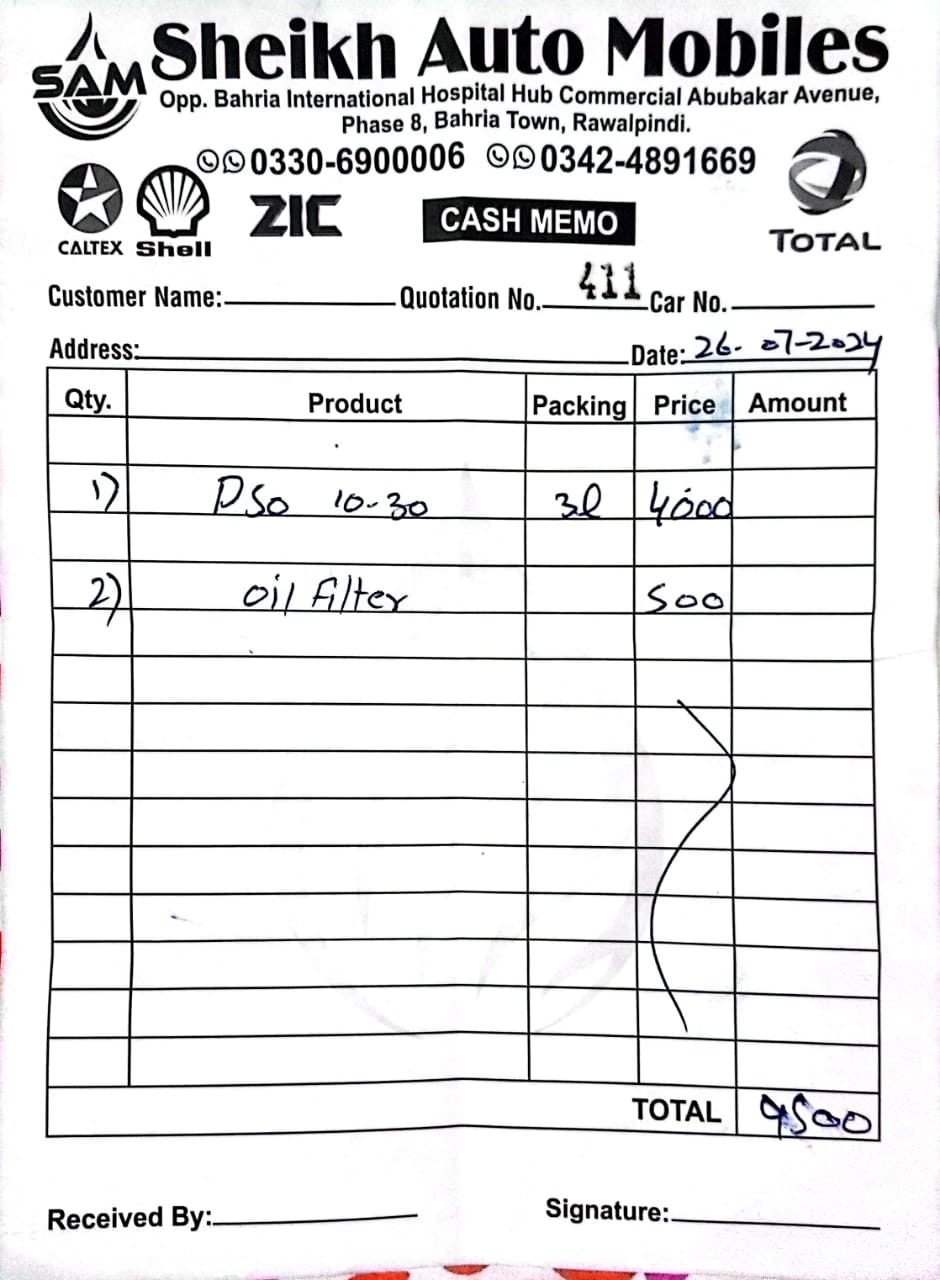 SAM Sheikh Auto Mobiles
Opp. Bahria International Hospital Hub Commercial Abubakar Avenue,
Phase 8, Bahria Town, Rawalpindi.
0330-6900006 0342-4891669
CALTEX Shell ZIC CASH MEMO TOTAL
Customer Name: Quotation No. 411 Car No.
Address: Date: 26-07-2024
Qty. Product Packing Price Amount
1) PSO 10-30 3l 4000
2) oil Filter 500
TOTAL 4500
Received By: Signature: